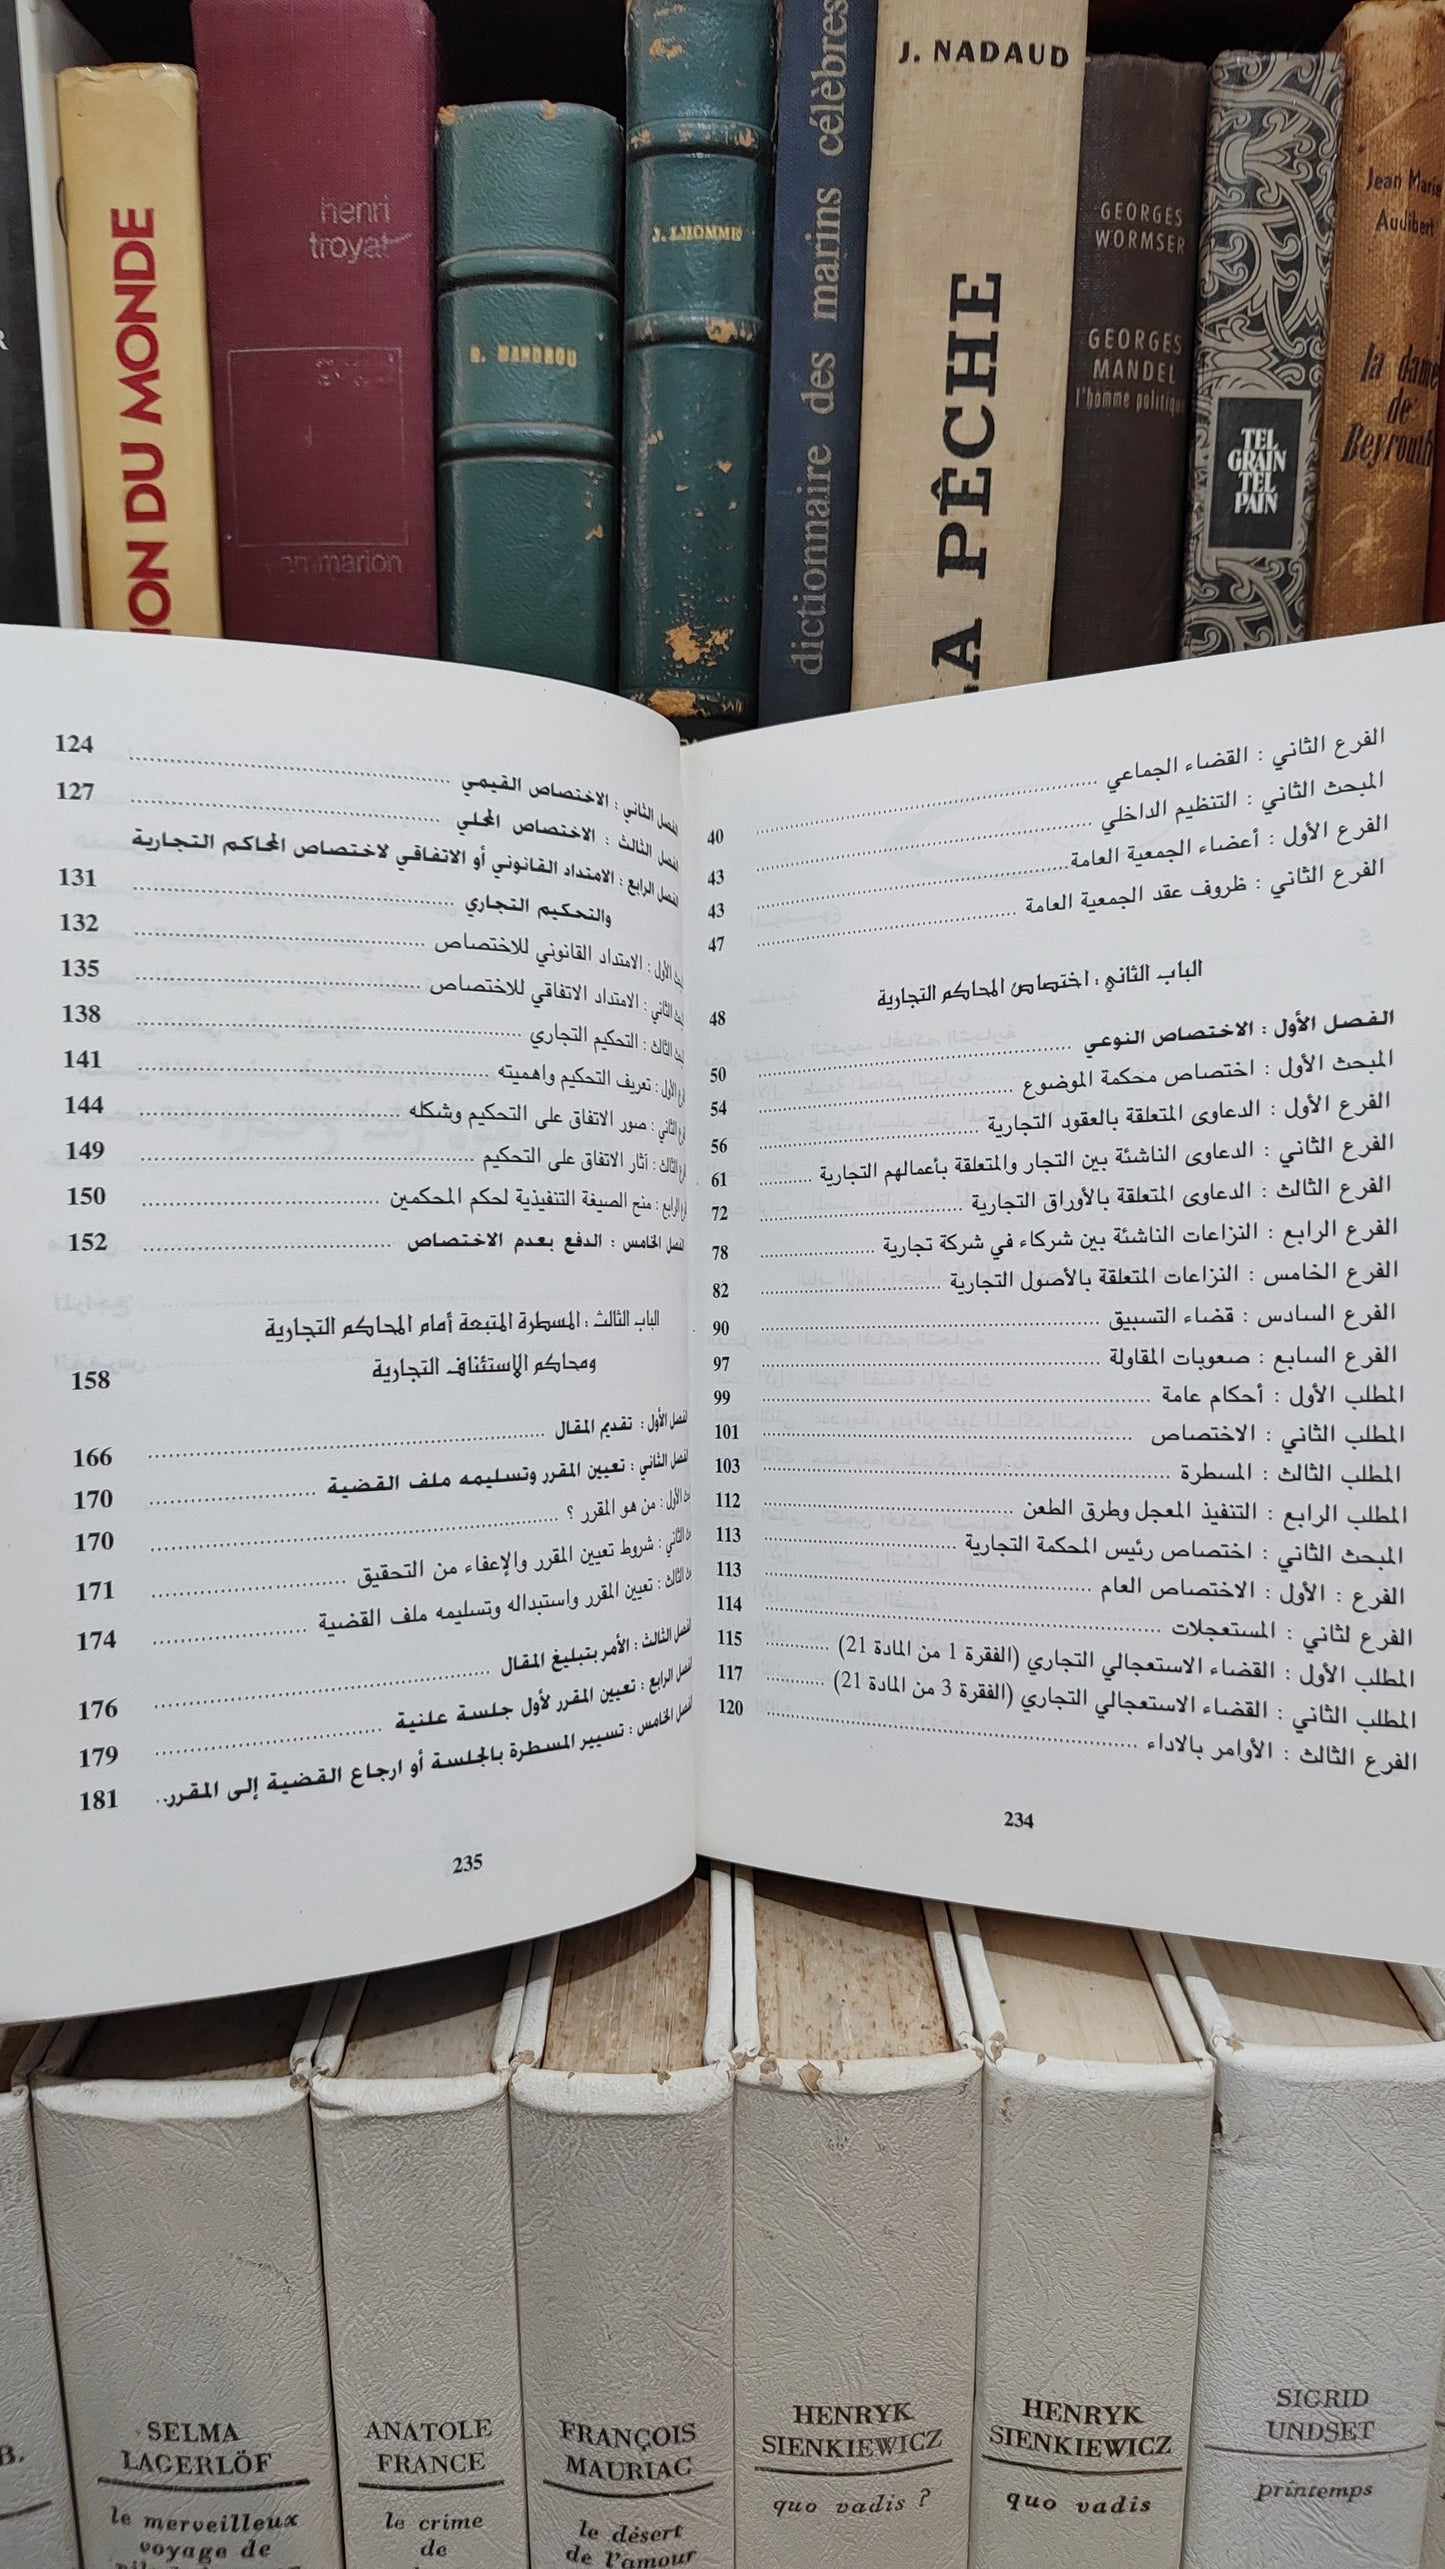 ION DU MONDE
henri
troyat
flammarion
R. MANDROU
J. LHOMME
dictionnaire des marins célèbres
J. NADAUD
LA PÊCHE
GEORGES
WORMSER
GEORGES
MANDEL
l'homme politique
TEL
GRAIN
TEL
PAIN
Jean Marie
Audibert
la dame
de
Beyrouth
الفرع الثاني : القضاء الجماعي ........ 40
المبحث الثاني : التنظيم الداخلي ........ 43
الفرع الأول : أعضاء الجمعية العامة ........ 43
الفرع الثاني : ظروف عقد الجمعية العامة ........ 47
الباب الثاني : اختصاص المحاكم التجارية 48
الفصل الأول : الاختصاص النوعي ........ 50
المبحث الأول : اختصاص محكمة الموضوع ........ 54
الفرع الأول : الدعاوى المتعلقة بالعقود التجارية ........ 56
الفرع الثاني : الدعاوى الناشئة بين التجار والمتعلقة بأعمالهم التجارية ........ 61
الفرع الثالث : الدعاوى المتعلقة بالأوراق التجارية ........ 72
الفرع الرابع : النزاعات الناشئة بين شركاء في شركة تجارية ........ 78
الفرع الخامس : النزاعات المتعلقة بالأصول التجارية ........ 82
الفرع السادس : قضاء التسبيق ........ 90
الفرع السابع : صعوبات المقاولة ........ 97
المطلب الأول : أحكام عامة ........ 99
المطلب الثاني : الاختصاص ........ 101
المطلب الثالث : المسطرة ........ 103
المطلب الرابع : التنفيذ المعجل وطرق الطعن ........ 112
المبحث الثاني : اختصاص رئيس المحكمة التجارية ........ 113
الفرع : الأول : الاختصاص العام ........ 113
الفرع لثاني : المستعجلات ........ 114
المطلب الأول : القضاء الاستعجالي التجاري (الفقرة 1 من المادة 21) ........ 115
المطلب الثاني : القضاء الاستعجالي التجاري (الفقرة 3 من المادة 21) ........ 117
الفرع الثالث : الأوامر بالاداء ........ 120
234
الفصل الثاني : الاختصاص القيمي ........ 124
الفصل الثالث : الاختصاص المحلي ........ 127
الفصل الرابع : الامتداد القانوني أو الاتفاقي لاختصاص المحاكم التجارية
والتحكيم التجاري ........ 131
المبحث الأول : الامتداد القانوني للاختصاص ........ 132
المبحث الثاني : الامتداد الاتفاقي للاختصاص ........ 135
المبحث الثالث : التحكيم التجاري ........ 138
الفرع الأول : تعريف التحكيم واهميته ........ 141
الفرع الثاني : صور الاتفاق على التحكيم وشكله ........ 144
الفرع الثالث : آثار الاتفاق على التحكيم ........ 149
الفرع الرابع : منح الصيغة التنفيذية لحكم المحكمين ........ 150
الفصل الخامس : الدفع بعدم الاختصاص ........ 152
الباب الثالث : المسطرة المتبعة أمام المحاكم التجارية
ومحاكم الإستئناف التجارية 158
الفصل الأول : تقديم المقال ........ 166
الفصل الثاني : تعيين المقرر وتسليمه ملف القضية ........ 170
المبحث الأول : من هو المقرر ؟ ........ 170
المبحث الثاني : شروط تعيين المقرر والإعفاء من التحقيق ........ 171
المبحث الثالث : تعيين المقرر واستبداله وتسليمه ملف القضية ........ 174
الفصل الثالث : الأمر بتبليغ المقال ........ 176
الفصل الرابع : تعيين المقرر لأول جلسة علنية ........ 179
الفصل الخامس : تسيير المسطرة بالجلسة أو ارجاع القضية إلى المقرر.. 181
235
SELMA
LAGERLÖF
le merveilleux
voyage de
ANATOLE
FRANCE
le crime
de
FRANÇOIS
MAURIAC
le désert
de l'amour
HENRYK
SIENKIEWICZ
quo vadis ?
HENRYK
SIENKIEWICZ
quo vadis
SIGRID
UNDSET
printemps